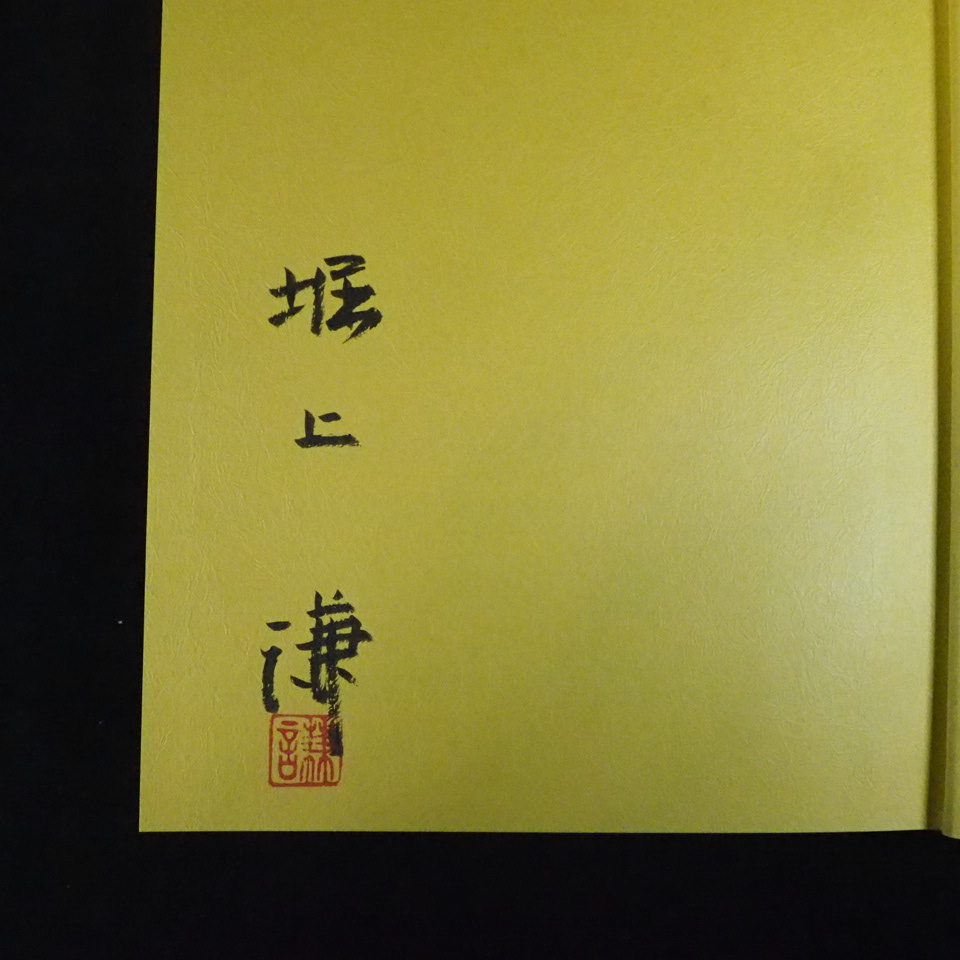 堀上謙
謙